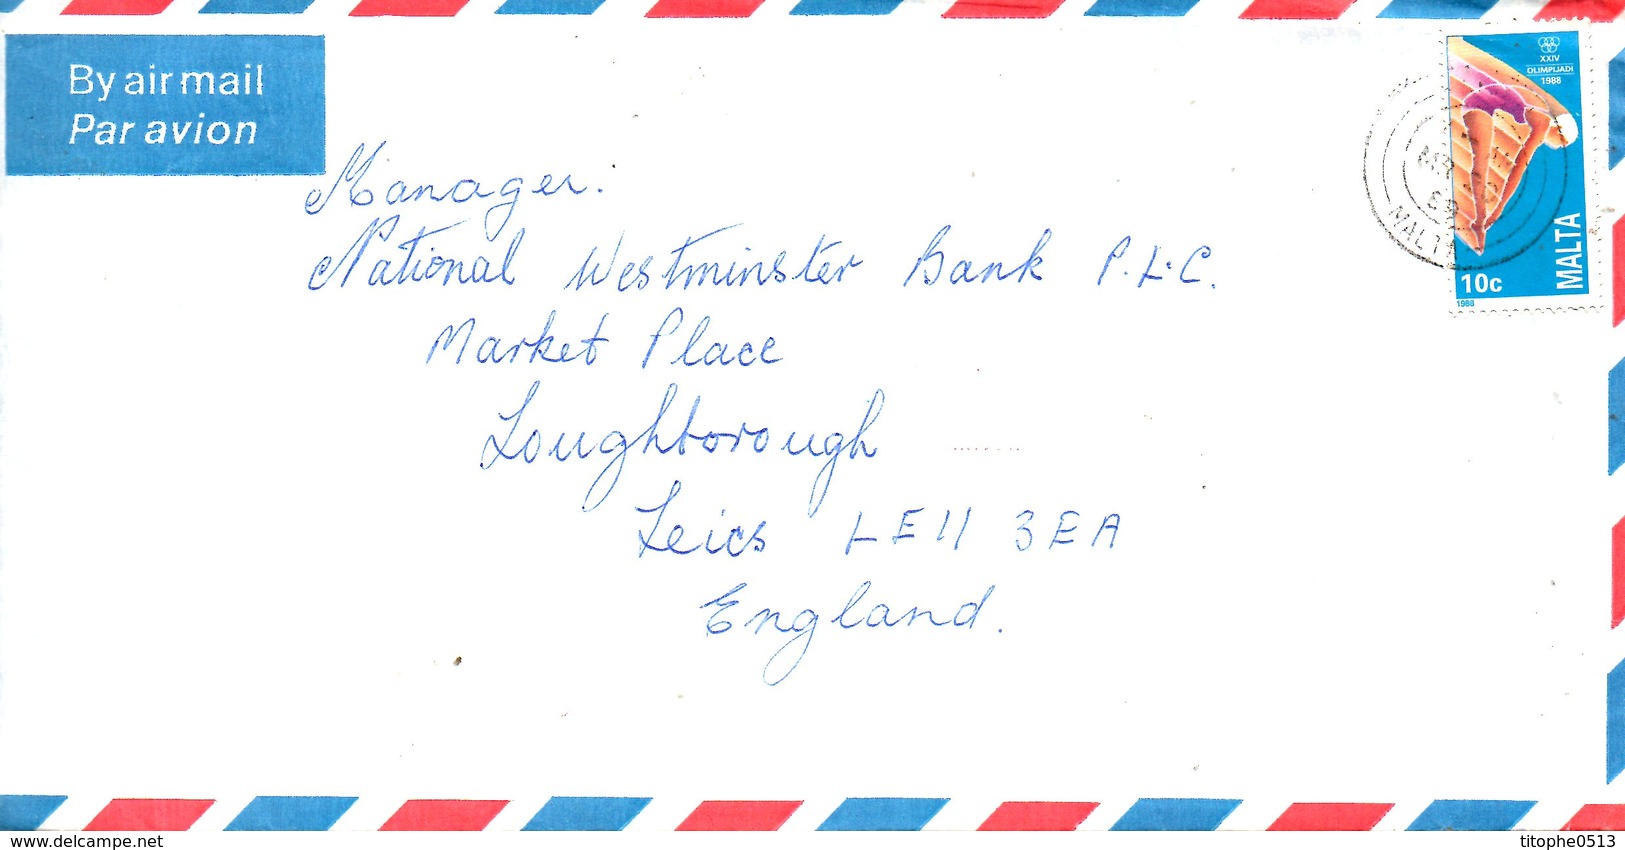 By air mail
Par avion
XXIV
OLIMPIJADI
1988
MALTA
10c
1988
MALTA
Manager.
National Westminster Bank P.L.C.
Market Place
Loughborough
Leics LE11 3EA
England.
delcampe.net
titophe0513